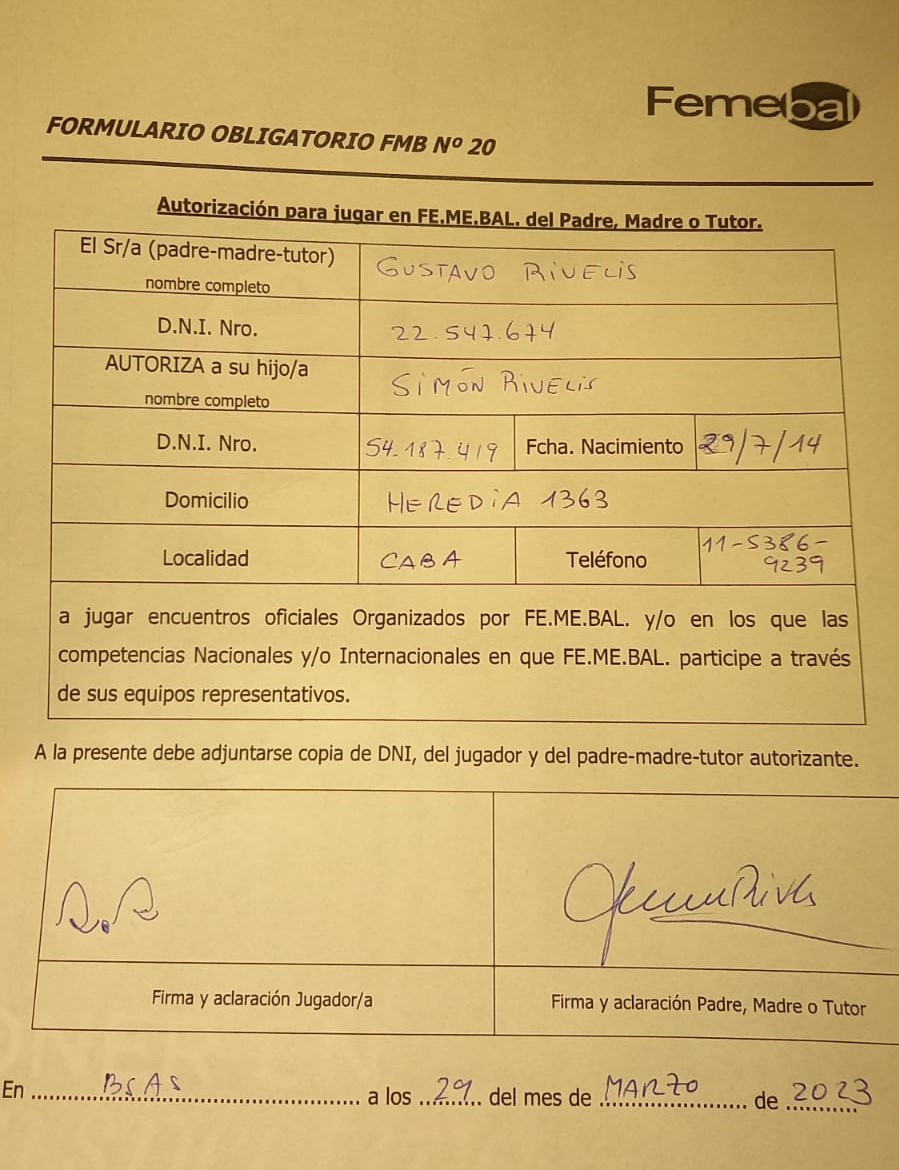 Femebal
FORMULARIO OBLIGATORIO FMB Nº 20
Autorización para jugar en FE.ME.BAL. del Padre, Madre o Tutor.
El Sr/a (padre-madre-tutor)
nombre completo
GUSTAVO RIVELIS
D.N.I. Nro.
22.547.674
AUTORIZA a su hijo/a
nombre completo
SIMÓN RIVELIS
D.N.I. Nro.
54.187.419
Fcha. Nacimiento
29/7/14
Domicilio
HEREDIA 1363
Localidad
CABA
Teléfono
11-5386-
9239
a jugar encuentros oficiales Organizados por FE.ME.BAL. y/o en los que las
competencias Nacionales y/o Internacionales en que FE.ME.BAL. participe a través
de sus equipos representativos.
A la presente debe adjuntarse copia de DNI, del jugador y del padre-madre-tutor autorizante.
Firma y aclaración Jugador/a
Firma y aclaración Padre, Madre o Tutor
En BSAS a los 29 del mes de MARZO de 2023